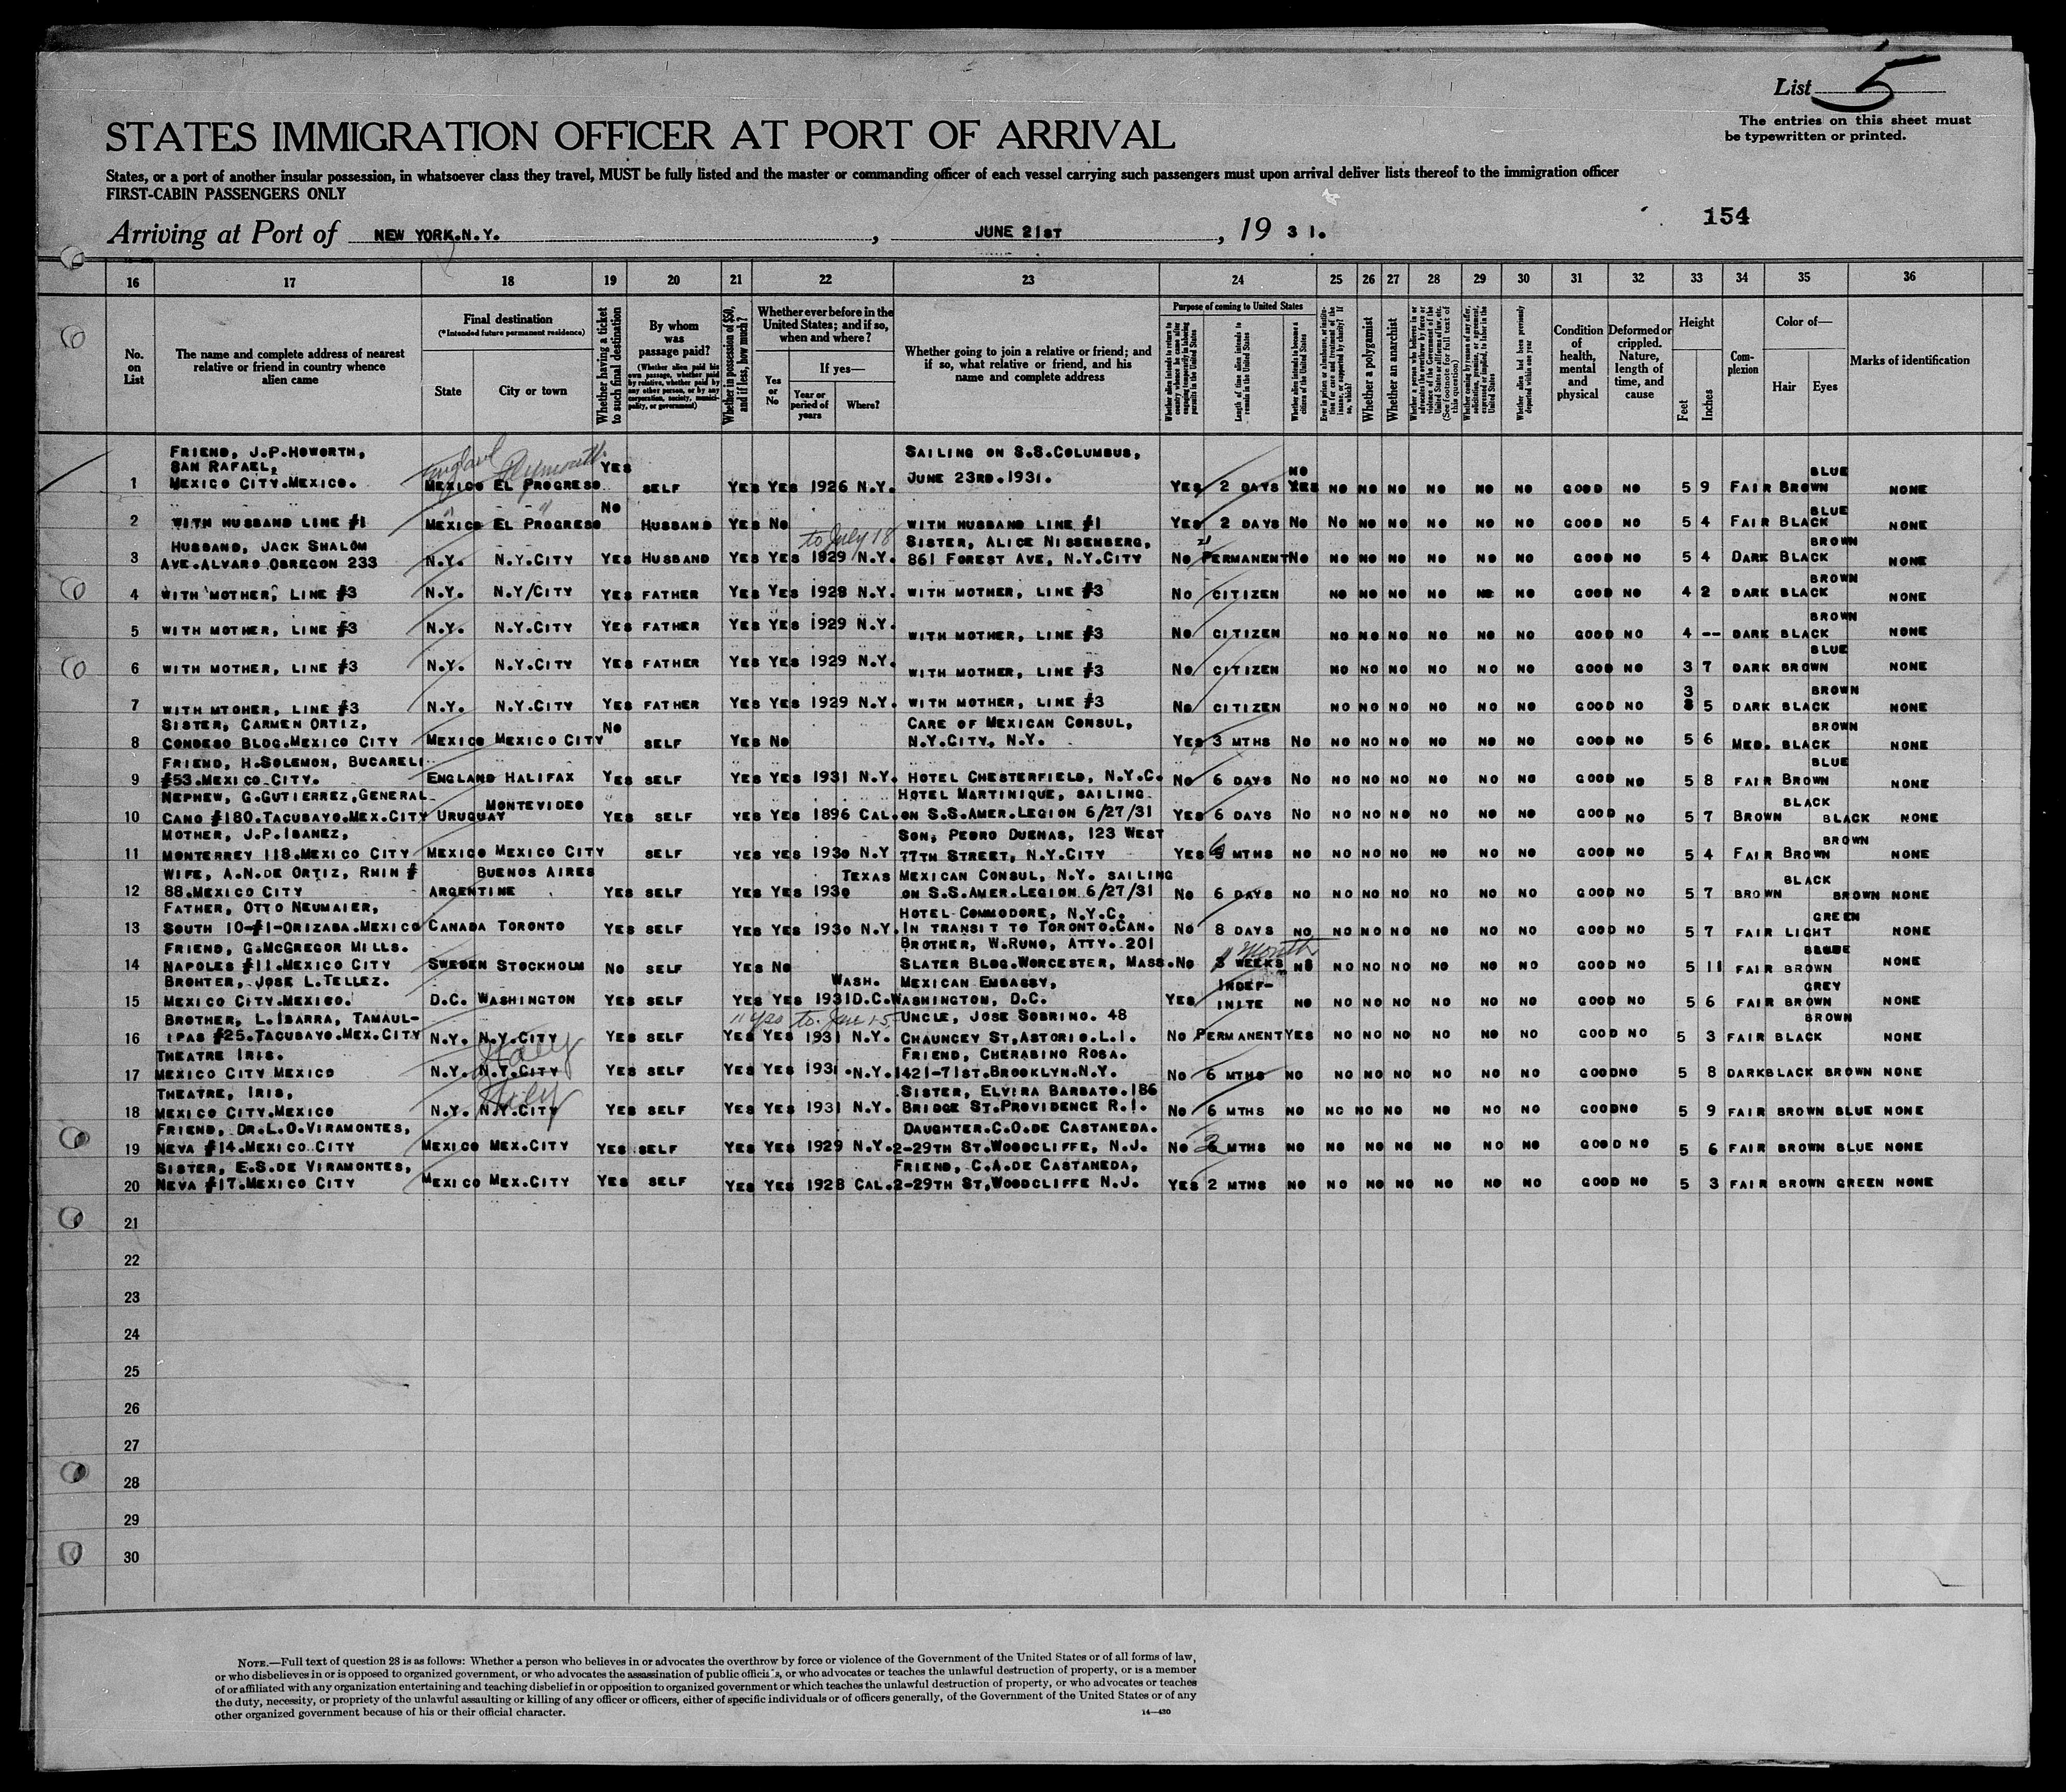 List 5
The entries on this sheet must
be typewritten or printed.
STATES IMMIGRATION OFFICER AT PORT OF ARRIVAL
States, or a port of another insular possession, in whatsoever class they travel, MUST be fully listed and the master or commanding officer of each vessel carrying such passengers must upon arrival deliver lists thereof to the immigration officer
FIRST-CABIN PASSENGERS ONLY
154
Arriving at Port of NEW YORK.N.Y. , JUNE 21ST , 19 31.
16 17 18 19 20 21 22 23 24 25 26 27 28 29 30 31 32 33 34 35 36
No. on List
The name and complete address of nearest relative or friend in country whence alien came
Final destination
(*Intended future permanent residence)
State City or town
Whether having a ticket to such final destination
By whom was passage paid?
(Whether alien paid his own passage, whether paid by relative, whether paid by any other person, or by any corporation, society, municipality, or government)
Whether in possession of $50, and if less, how much?
Whether ever before in the United States; and if so, when and where?
Yes or No
If yes—
Year or period of years
Where?
Whether going to join a relative or friend; and if so, what relative or friend, and his name and complete address
Purpose of coming to United States
Whether alien intends to return to country whence he came after engaging temporarily in laboring pursuits in the United States
Length of time alien intends to remain in the United States
Whether alien intends to become a citizen of the United States
Whether a polygamist
Whether an anarchist
Whether alien had been previously deported within one year
Condition of health, mental and physical
Deformed or crippled. Nature, length of time, and cause
Height
Feet Inches
Complexion
Color of—
Hair Eyes
Marks of identification
FRIEND, J.P.HOWORTH, SAILING ON S.S.COLUMBUS,
SAN RAFAEL, England Plymouth YES NO BLUE
1 MEXICO CITY.MEXICO. MEXICO EL PROGRESO SELF YES YES 1926 N.Y. JUNE 23RD.1931. YES 2 DAYS YES NO NO NO NO NO NO GOOD NO 5 9 FAIR BROWN NONE
NO BLUE
2 WITH HUSBAND LINE #1 MEXICO EL PROGRESO HUSBAND YES NO WITH HUSBAND LINE #1 YES 2 DAYS NO NO NO NO NO NO NO GOOD NO 5 4 FAIR BLACK NONE
HUSBAND, JACK SHALOM to July 18 SISTER, ALICE NISSENBERG, BROWN
3 AVE.ALVARO OBREGON 233 N.Y. N.Y.CITY YES HUSBAND YES YES 1929 N.Y. 861 FOREST AVE, N.Y.CITY NO PERMANENT NO NO NO NO NO NO NO GOOD NO 5 4 DARK BLACK NONE
BROWN
4 WITH MOTHER, LINE #3 N.Y. N.Y/CITY YES FATHER YES YES 1928 N.Y. WITH MOTHER, LINE #3 NO CITIZEN NO NO NO NO NO NO GOOD NO 4 2 DARK BLACK NONE
BROWN
5 WITH MOTHER, LINE #3 N.Y. N.Y.CITY YES FATHER YES YES 1929 N.Y. WITH MOTHER, LINE #3 NO CITIZEN NO NO NO NO NO NO GOOD NO 4 -- DARK BLACK NONE
BLUE
6 WITH MOTHER, LINE #3 N.Y. N.Y.CITY YES FATHER YES YES 1929 N.Y. WITH MOTHER, LINE #3 NO CITIZEN NO NO NO NO NO NO GOOD NO 3 7 DARK BROWN NONE
3 BROWN
7 WITH MTOHER, LINE #3 N.Y. N.Y.CITY YES FATHER YES YES 1929 N.Y. WITH MOTHER, LINE #3 NO CITIZEN NO NO NO NO NO NO GOOD NO 5 DARK BLACK NONE
SISTER, CARMEN ORTIZ, NO CARE OF MEXICAN CONSUL, BROWN
8 CONDESO BLDG.MEXICO CITY MEXICO MEXICO CITY SELF YES NO N.Y.CITY, N.Y. YES 3 MTHS NO NO NO NO NO NO NO GOOD NO 5 6 MED. BLACK NONE
FRIEND, H.SOLEMON, BUCARELI BLUE
9 #53.MEXICO CITY. ENGLAND HALIFAX YES SELF YES YES 1931 N.Y. HOTEL CHESTERFIELD, N.Y.C. NO 6 DAYS NO NO NO NO NO NO NO GOOD NO 5 8 FAIR BROWN NONE
NEPHEW, G.GUTIERREZ,GENERAL MONTEVIDEO HOTEL MARTINIQUE, SAILING BLACK
10 CANO #180.TACUBAYO.MEX.CITY URUGUAY YES SELF YES YES 1896 CAL. ON S.S.AMER.LEGION 6/27/31 YES 6 DAYS NO NO NO NO NO NO NO GOOD NO 5 7 BROWN BLACK NONE
MOTHER, J.P.IBANEZ, SON, PEDRO DUENAS, 123 WEST BROWN
11 MONTERREY 118.MEXICO CITY MEXICO MEXICO CITY SELF YES YES 1930 N.Y 77TH STREET, N.Y.CITY YES 6 MTHS NO NO NO NO NO NO NO GOOD NO 5 4 FAIR BROWN NONE
WIFE, A.N.DE ORTIZ, RHIN # BUENOS AIRES TEXAS MEXICAN CONSUL, N.Y. SAILING BLACK
12 88.MEXICO CITY ARGENTINE YES SELF YES YES 1930 ON S.S.AMER.LEGION 6/27/31 NO 6 DAYS NO NO NO NO NO NO NO GOOD NO 5 7 BROWN BROWN NONE
FATHER, OTTO NEUMAIER, HOTEL COMMODORE, N.Y.C. GREEN
13 SOUTH 10-#1-ORIZABA.MEXICO CANADA TORONTO YES SELF YES YES 1930 N.Y. IN TRANSIT TO TORONTO.CAN. NO 8 DAYS NO NO NO NO NO NO NO GOOD NO 5 7 FAIR LIGHT NONE
FRIEND, G.MCGREGOR MILLS. BROTHER, W.RUNO, ATTY. 201 1 month
14 NAPOLES #11.MEXICO CITY SWEDEN STOCKHOLM NO SELF YES NO SLATER BLDG.WORCESTER, MASS. NO 3 WEEKS NO NO NO NO NO NO NO GOOD NO 5 11 FAIR BROWN NONE
BROHTER, JOSE L.TELLEZ. WASH. MEXICAN EMBASSY, INDEF- GREY
15 MEXICO CITY.MEXICO. D.C. WASHINGTON YES SELF YES YES 1931 D.C. WASHINGTON, D.C. YES INITE NO NO NO NO NO NO NO GOOD NO 5 6 FAIR BROWN NONE
BROTHER, L.IBARRA, TAMAUL- UNCLE, JOSE SOBRINO. 48 BROWN
16 IPAS #25.TACUBAYO.MEX.CITY N.Y. N.Y.CITY YES SELF YES YES 1931 N.Y. CHAUNCEY ST,ASTORIO.L.I. NO PERMANENT YES NO NO NO NO NO NO GOOD NO 5 3 FAIR BLACK NONE
THEATRE IRIS. Italy FRIEND, CHERABINO ROSA.
17 MEXICO CITY MEXICO N.Y. N.Y.CITY YES SELF YES YES 1931 N.Y. 1421-71ST.BROOKLYN.N.Y. NO 6 MTHS NO NO NO NO NO NO NO GOOD NO 5 8 DARK BLACK BROWN NONE
THEATRE, IRIS, Italy SISTER, ELVIRA BARBATO.186
18 MEXICO CITY.MEXICO N.Y. N.Y.CITY YES SELF YES YES 1931 N.Y. BRIDGE ST.PROVIDENCE R.I. NO 6 MTHS NO NO NO NO NO NO NO GOOD NO 5 9 FAIR BROWN BLUE NONE
FRIEND, DR.L.O.VIRAMONTES, DAUGHTER.C.O.DE CASTANEDA.
19 NEVA #14.MEXICO CITY MEXICO MEX.CITY YES SELF YES YES 1929 N.Y. 2-29TH ST.WOODCLIFFE, N.J. NO MTHS NO NO NO NO NO NO NO GOOD NO 5 6 FAIR BROWN BLUE NONE
SISTER, E.S.DE VIRAMONTES, FRIEND, C.A.DE CASTANEDA,
20 NEVA #17.MEXICO CITY MEXICO MEX.CITY YES SELF YES YES 1928 CAL. 2-29TH ST,WOODCLIFFE N.J. YES 2 MTHS NO NO NO NO NO NO NO GOOD NO 5 3 FAIR BROWN GREEN NONE
21
22
23
24
25
26
27
28
29
30
NOTE.—Full text of question 28 is as follows: Whether a person who believes in or advocates the overthrow by force or violence of the Government of the United States or of all forms of law,
or who disbelieves in or is opposed to organized government, or who advocates the assassination of public officials, or who advocates or teaches the unlawful destruction of property, or is a member
of or affiliated with any organization entertaining and teaching disbelief in or opposition to organized government or which teaches the unlawful destruction of property, or who advocates or teaches
the duty, necessity, or propriety of the unlawful assaulting or killing of any officer or officers, either of specific individuals or of officers generally, of the Government of the United States or of any
other organized government because of his or their official character.
14—430